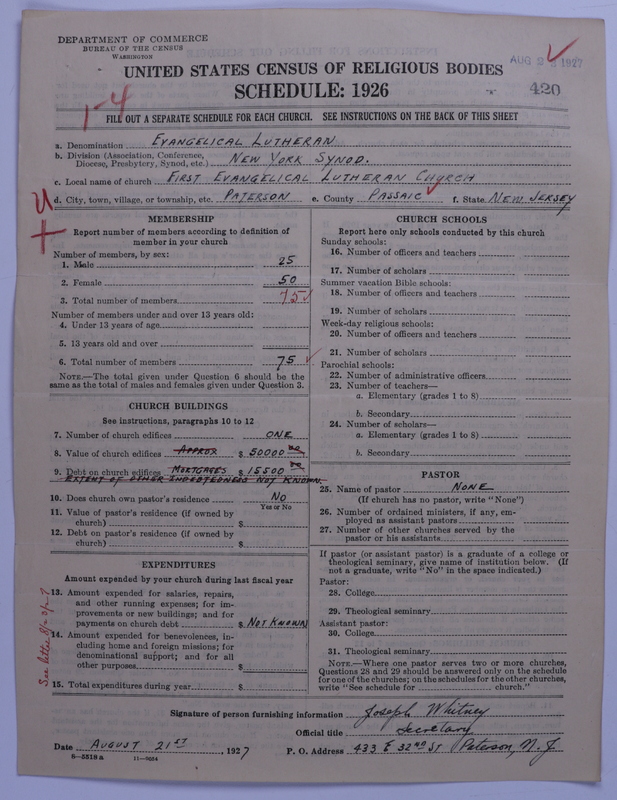 DEPARTMENT OF COMMERCE
BUREAU OF THE CENSUS
WASHINGTON
AUG 2 1927
UNITED STATES CENSUS OF RELIGIOUS BODIES
SCHEDULE: 1926
420
1-4
FILL OUT A SEPARATE SCHEDULE FOR EACH CHURCH. SEE INSTRUCTIONS ON THE BACK OF THIS SHEET
a. Denomination EVANGELICAL LUTHERAN
b. Division (Association, Conference, Diocese, Presbytery, Synod, etc.) NEW YORK SYNOD.
c. Local name of church FIRST EVANGELICAL LUTHERAN CHURCH
d. City, town, village, or township, etc. PATERSON e. County PASSAIC f. State NEW JERSEY
U
MEMBERSHIP
Report number of members according to definition of
member in your church
Number of members, by sex:
1. Male 25
2. Female 50
3. Total number of members 75
Number of members under and over 13 years old:
4. Under 13 years of age
5. 13 years old and over
6. Total number of members 75
NOTE.—The total given under Question 6 should be the
same as the total of males and females given under Question 3.
CHURCH BUILDINGS
See instructions, paragraphs 10 to 12
7. Number of church edifices ONE
8. Value of church edifices APPROX $ 50000 no
9. Debt on church edifices MORTGAGES $ 15500 no
EXTENT OF OTHER INDEBTEDNESS NOT KNOWN.
10. Does church own pastor's residence NO
Yes or No
11. Value of pastor's residence (if owned by
church) $
12. Debt on pastor's residence (if owned by
church) $
EXPENDITURES
Amount expended by your church during last fiscal year
13. Amount expended for salaries, repairs,
and other running expenses; for im-
provements or new buildings; and for
payments on church debt $ NOT KNOWN
14. Amount expended for benevolences, in-
cluding home and foreign missions; for
denominational support; and for all
other purposes $
15. Total expenditures during year $
See letter
CHURCH SCHOOLS
Report here only schools conducted by this church
Sunday schools:
16. Number of officers and teachers
17. Number of scholars
Summer vacation Bible schools:
18. Number of officers and teachers
19. Number of scholars
Week-day religious schools:
20. Number of officers and teachers
21. Number of scholars
Parochial schools:
22. Number of administrative officers
23. Number of teachers—
a. Elementary (grades 1 to 8)
b. Secondary
24. Number of scholars—
a. Elementary (grades 1 to 8)
b. Secondary
PASTOR
25. Name of pastor NONE
(If church has no pastor, write "None")
26. Number of ordained ministers, if any, em-
ployed as assistant pastors
27. Number of other churches served by the
pastor or his assistants
If pastor (or assistant pastor) is a graduate of a college or
theological seminary, give name of institution below. (If
not a graduate, write "No" in the space indicated.)
Pastor:
28. College
29. Theological seminary
Assistant pastor:
30. College
31. Theological seminary
NOTE.—Where one pastor serves two or more churches,
Questions 28 and 29 should be answered only on the schedule
for one of the churches; on the schedules for the other churches,
write "See schedule for church."
Signature of person furnishing information Joseph Whitney
Official title Secretary
Date AUGUST 21ST, 1927
P. O. Address 433 E 32ND ST Paterson, N. J.
8—5518a 11—9624